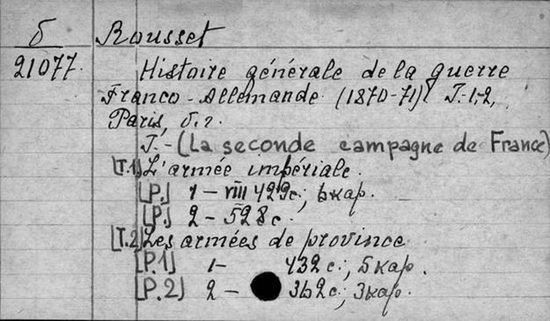 б Rousset
21077. Histoire générale de la guerre
Franco-Allemande (1870-71) Т.1-2,
Paris, б. г.
Т.- (La seconde campagne de France)
[Т.1] L'armée impériale.
[P.] 1 - VIII 429 с., 6 кар.
[P.] 2 - 528 с.
[Т.2] Les armées de province
[P.1] 1- 432 с.; 5 кар.
[P.2] 2 - 362 с.; 3 кар.